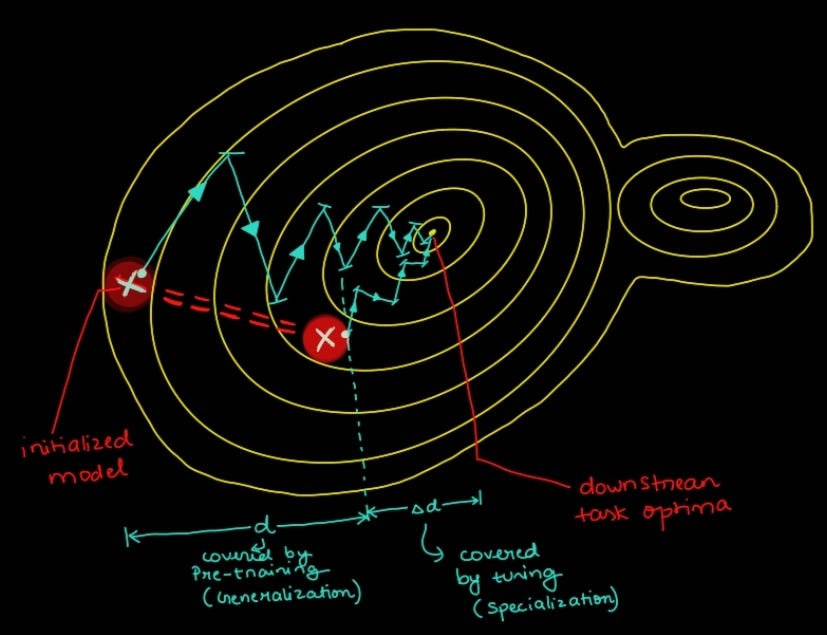 initialized
model
downstream
task optima
d
covered by
Pre-training
(Generalization)
Δd
covered
by tuning
(specialization)